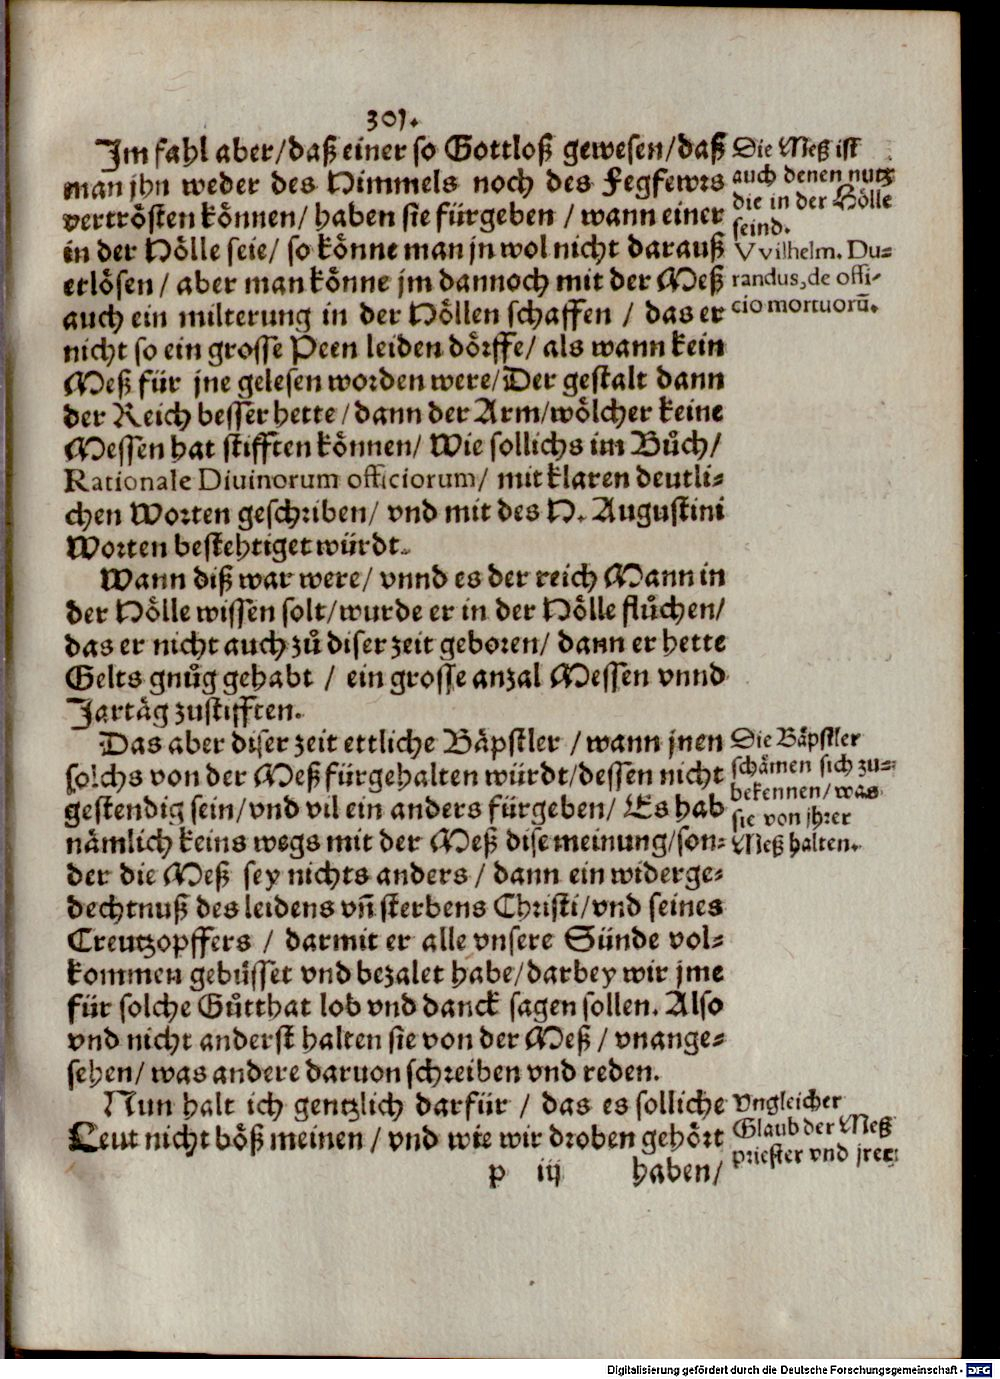 301.
Im fahl aber/daß einer so Gottloß gewesen/daß
man jhn weder des Himmels noch des Fegfewrs
vertrösten können/ haben sie fürgeben / wann einer
in der Hölle seie/ so könne man jn wol nicht darauß
erlösen/ aber man könne jm dannoch mit der Meß
auch ein milterung in der Höllen schaffen / das er
nicht so ein grosse Peen leiden dörffe/ als wann kein
Meß für jne gelesen worden were/Der gestalt dann
der Reich besser hette/dann der Arm/wölcher keine
Messen hat stifften können/ Wie sollichs im Bůch/
Rationale Diuinorum officiorum/ mit klaren deutli-
chen Worten geschriben/ vnd mit des H. Augustini
Worten bestehtiget würdt.
Die Meß ist
auch denen nutz
die in der Hölle
seind.
VVilhelm. Du-
randus, de offi-
cio mortuorū.
Wann diß war were/ vnnd es der reich Mann in
der Hölle wissen solt/wurde er in der Hölle flůchen/
das er nicht auch zů diser zeit geboren/ dann er hette
Gelts gnůg gehabt / ein grosse anzal Messen vnnd
Jartäg zustifften.
Das aber diser zeit ettliche Bäpstler /wann jnen
solchs von der Meß fürgehalten würdt/dessen nicht
gestendig sein/vnd vil ein anders fürgeben/ Es hab
nämlich keins wegs mit der Meß dise meinung/son-
der die Meß sey nichts anders / dann ein widerge-
dechtnuß des leidens vn̄ sterbens Christi/vnd seines
Creutzopffers / darmit er alle vnsere Sünde vol-
kommen gebüsset vnd bezalet habe/darbey wir jme
für solche Gůtthat lob vnd danck sagen sollen. Also
vnd nicht anderst halten sie von der Meß / vnange-
sehen/ was andere daruon schreiben vnd reden.
Die Bäpstler
schämen sich zu-
bekennen/ was
sie von jhrer
Meß halten.
Nun halt ich gentzlich darfür / das es solliche
Leut nicht böß meinen / vnd wie wir droben gehört
Vngleicher
Glaub der Meß
priester vnd jrer
p iij haben/
Digitalisierung gefördert durch die Deutsche Forschungsgemeinschaft - DFG